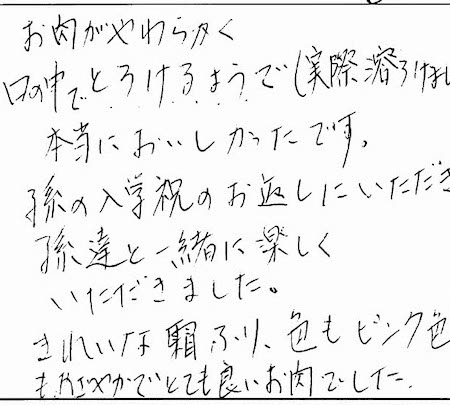 お肉がやわらかく
口の中でとろけるようで(実際溶ろけまし
本当においしかったです。
孫の入学祝のお返しにいただき
孫達と一緒に楽しく
いただきました。
きれいな霜ふり、色もピンク色
もおだやかでとても良いお肉でした.